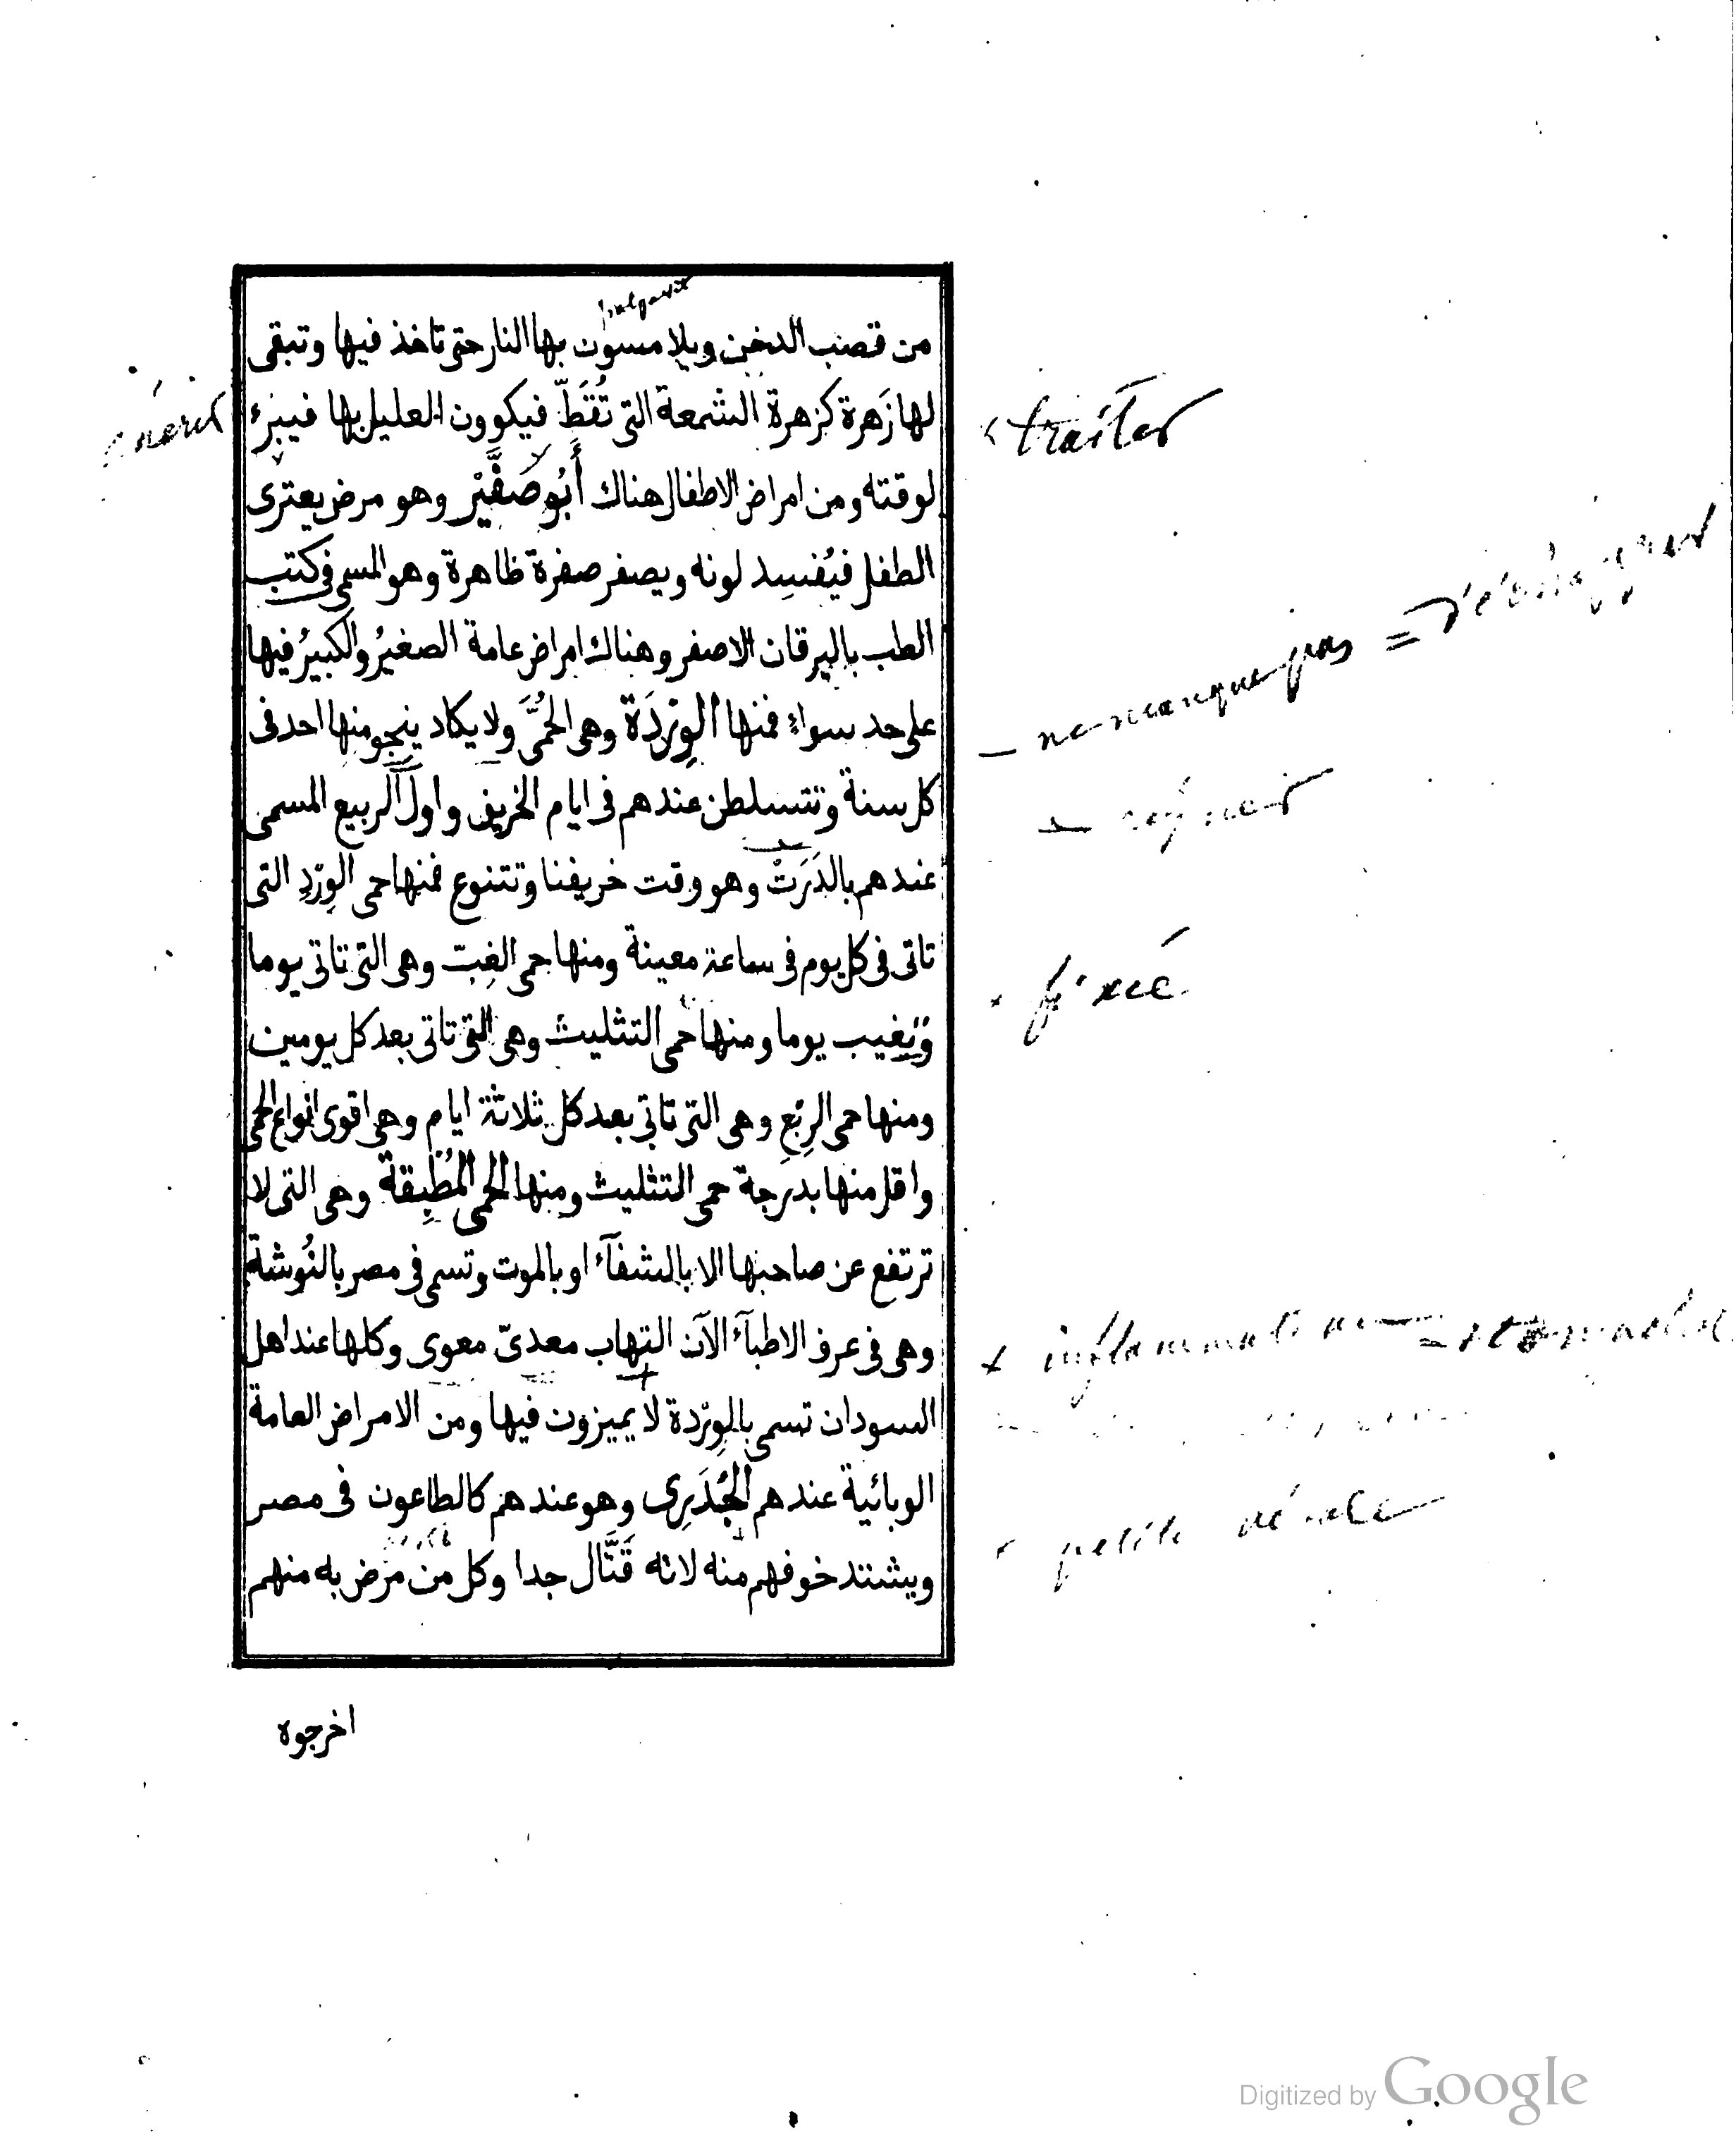 من قصب الدخن ويلامسون بها النار حتى تاخذ فيها وتبقى
لها زَهرة كزهرة الشمعة التى تُقَطّ فيكوون العليل بها فيبرء
traiter
لوقته ومن امراض الاطفال هناك أَبُو صَفَّيْر وهو مرض يعترى
الطفل فيُفسِد لونه ويصفر صفرة ظاهرة وهو المسمى فى كتب
الطب باليرقان الاصفر وهناك امراض عامة الصغيرُ والكبيرُ فيها
على حد سواء فمنها الوِرْدَة وهى الحُمَّى ولا يكاد ينجو منها احد فى
— ne manque pas =
كل سنة وتتسلطن عندهم فى ايام الخريف واول الربيع المسمى
— régner
عندهم بالدَرَتْ وهو وقت خريفنا وتتنوع فمنها حمى الوِرْدِ التى
تاتى فى كل يوم فى ساعة معينة ومنها حمى الغِبّ وهى التى تاتى يوما
fixée
وتغيب يوما ومنها حمى التثليث وهى التى تاتى بعد كل يومين
ومنها حمى الرِبْعِ وهى التى تاتى بعد كل ثلاثة ايام وهى اقوى انواع الحمى
واقل منها بدرجة حمى التثليث ومنها الحمى المُطْبِقة وهى التى لا
ترتفع عن صاحبها الا بالشفآء او بالموت وتسمى فى مصر بالنُوشة
وهى فى عرف الاطبآء الآن التهاب معدىّ معوى وكلها عند اهل
+ inflammation =
السودان تسمى بالوِرْدة لا يميزون فيها ومن الامراض العامة
الوبائية عندهم الجُدَرِى وهو عندهم كالطاعون فى مصر
petite vérole
ويشتد خوفهم منه لانه قَتَّال جدا وكل من مرض به منهم
اخرجوه
Digitized by Google